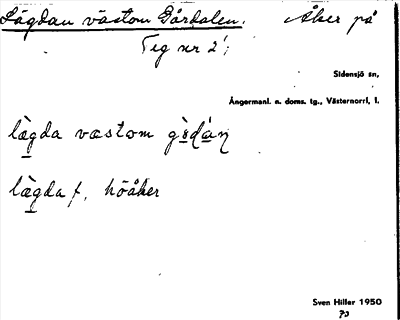 Lägdan västom Gårdalen. Åker på
Teg nr 2;
Sidensjö sn,
Ångermanl. n. doms. tg., Västernorrl. l.
lègda væstom
lègda f. höåker
Sven Hiller 1950